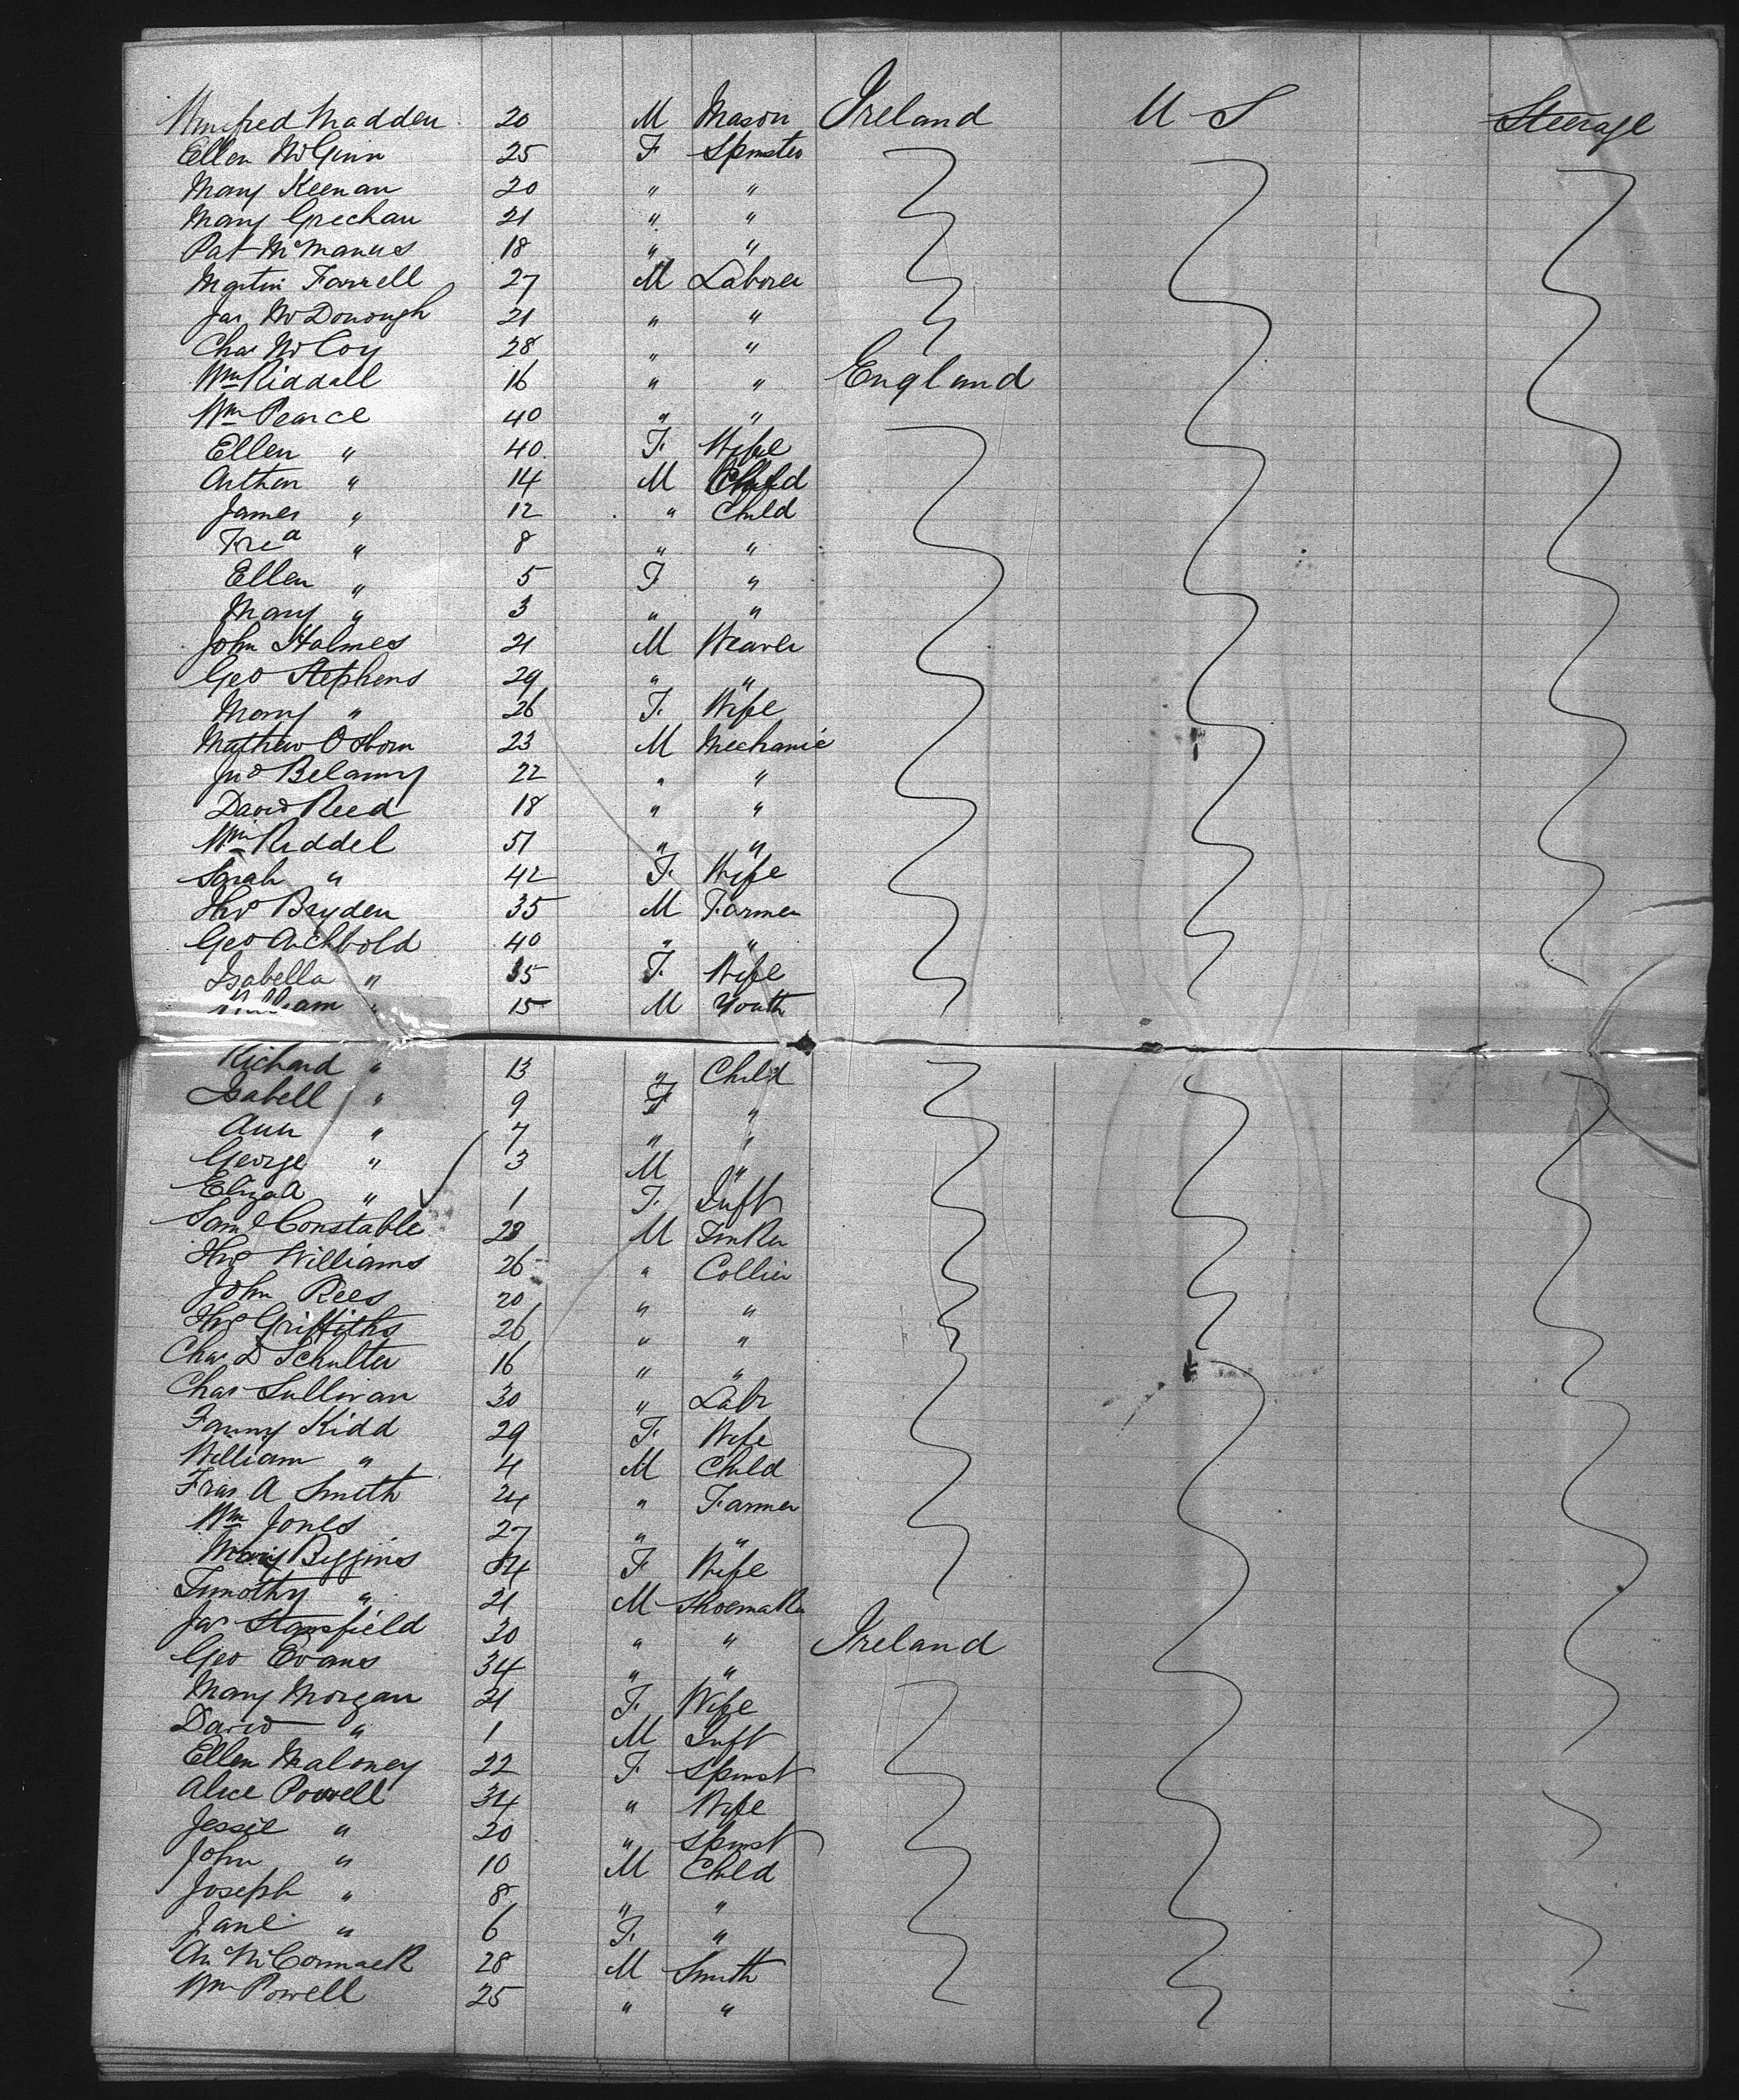 Winifred Madden 20 M Mason Ireland U S Steerage
Ellen McGinn 25 F Spinster
Mary Keenan 20 " "
Mary Grechan 21 " "
Pat McManus 18 " "
Martin Farrell 27 M Laborer
Jas McDonough 21 " "
Chas McCoy 28 " "
Wm Riddall 16 " " England
Wm Pearce 40 " "
Ellen " 40 F. Wife
Arthur " 14 M Child
James " 12 " Child
Fred " 8 " "
Ellen " 5 F "
Mary " 3 " "
John Holmes 21 M Weaver
Geo Stephens 29 " "
Mary " 26 F. Wife
Mathew Osborn 23 M Mechanic
Jno Belamy 22 " "
David Reed 18 " "
Wm Riddel 51 " "
Sarah " 42 F. Wife
Thos Bryden 35 M Farmer
Geo Archbold 40 " "
Isabella " 35 F. Wife
William " 15 M Youth
Richard " 13 " Child
Isabell " 9 F "
Ann " 7 " "
George " 3 M "
Eliza A " 1 F. Inft
Saml Constable 28 M Tinker
Thos Williams 26 " Collier
John Rees 20 " "
Thos Griffiths 26 " "
Chas D Schulter 16 " "
Chas Sullivan 30 " Labr
Fanny Kidd 29 F. Wife
William " 4 M Child
Fras A Smith 24 " Farmer
Wm Jones 27 " "
Mary Biggins 34 F Wife
Timothy " 21 M Shoemaker
Jas Stansfield 30 " " Ireland
Geo Evans 34 " "
Mary Morgan 21 F. Wife
David " 1 M Inft
Ellen Maloney 22 F Spinst
Alice Powell 34 " Wife
Jessie " 20 " Spinst
John " 10 M Child
Joseph " 8 " "
Jane " 6 F. "
McCormack 28 M Smith
Wm Powell 25 " "